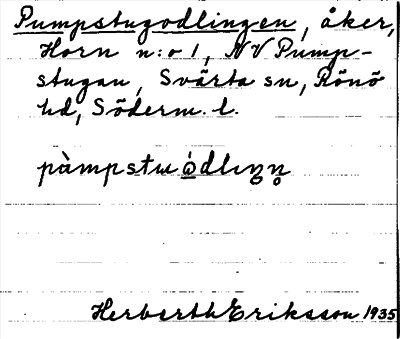 Pumpstugodlingen, åker,
Horn n:o 1, NV Pump-
stugan, Svärta sn, Rönö
hd, Söderm. l.
pàmpstu ó̱dlıŋn̥
Herberth Eriksson 1935